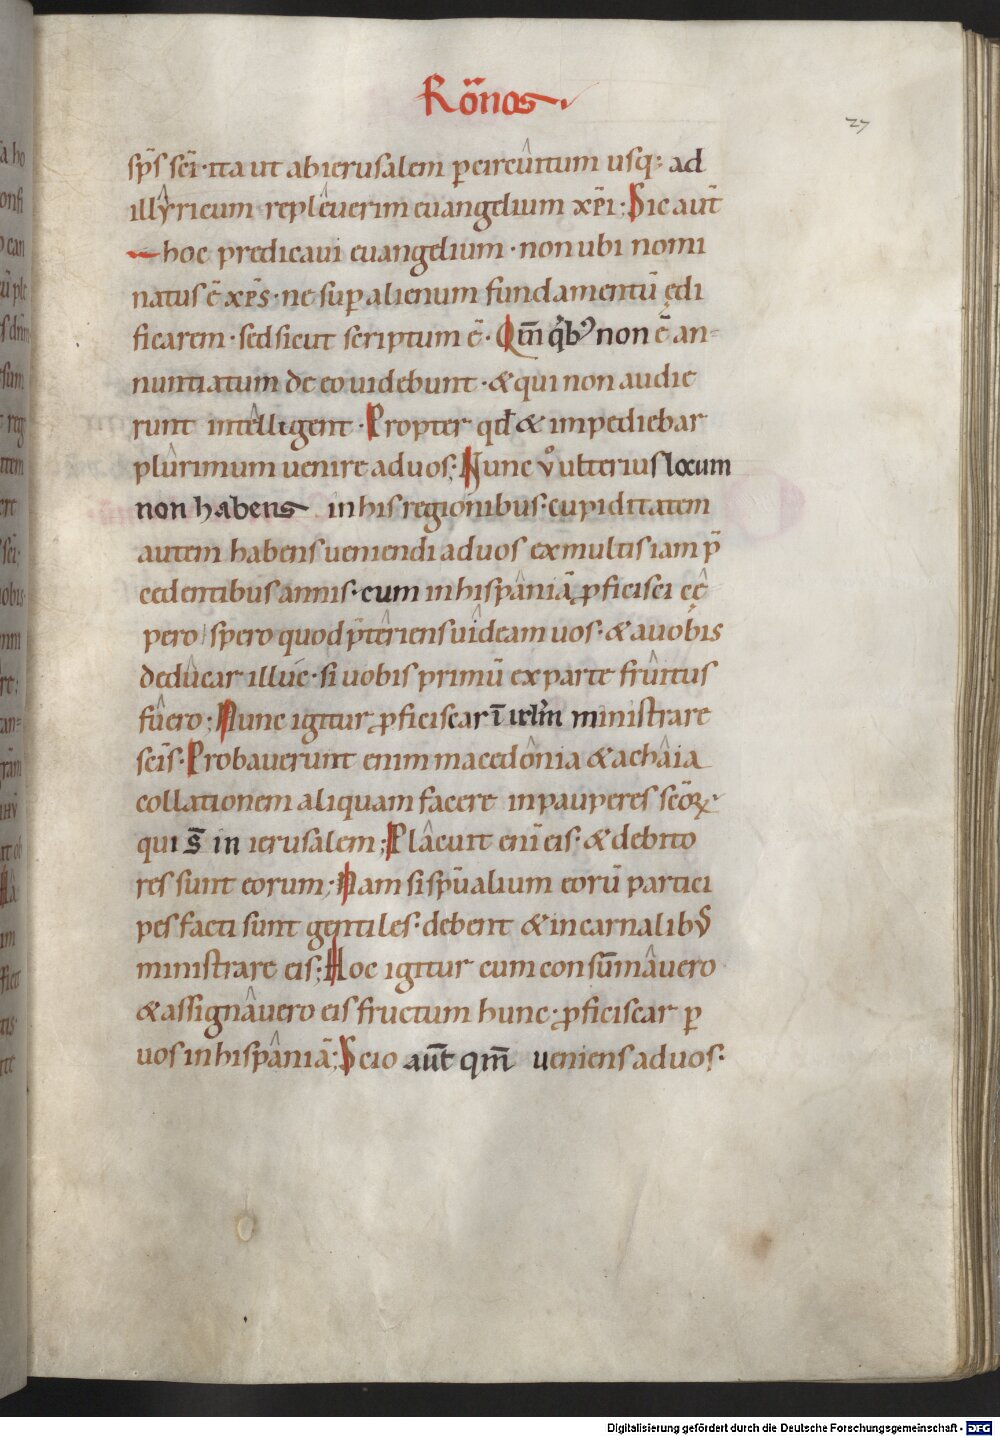 Rönos
27
sp̄s sc̄i · ita ut ab ierusalem p circûitum usq; ad
illŷricum replêverim euangelium xp̄i; Sic aut̄
hoc predicaui euangelium · non ubi nomi
natus ē xp̄s · ne sup alienum fundamentū ędi
ficarem · sed sicut scriptum ē · Qm̄ qⁱb⁹ non ē an-
nuntiatum de eo uidebunt · & qui non audie
runt intêlligent · Propter qđ & impediebar
plûrimum uenire ad uos; Nunc ůulterius locum
non habens in his regionibus · cupiditatem
autem habens ueniendi ad uos ex multis iam p̄
cedentibus annis · cum in hispâniā ꝓficisci cę̂
pero spero quod p̄tê riens uîdeam uos · & a uobis
dedûcar illuc · si uobis primū ex parte frûitus
fûero; Nunc igitur ꝓficiscar ī ierl̄m ministrare
sc̄is · Probauerunt enim macedônia & achâia
collationem aliquam facere in pauperes sc̄oꝝ·
qui s̄ in ierusalem; Plâcuit enī eis · & debito
res sunt eorum; Nam si sp̄ualium eorū partici
pes facti sunt gentiles · debent & in carnalib⁹
ministrare eis; Hoc igitur cum consūmâuero
& assignâuero eis fructum hunc · ꝓficiscar p
uos in hispâniā; Scio aut̄ qm̄ ueniens ad uos·
Digitalisierung gefördert durch die Deutsche Forschungsgemeinschaft - DFG